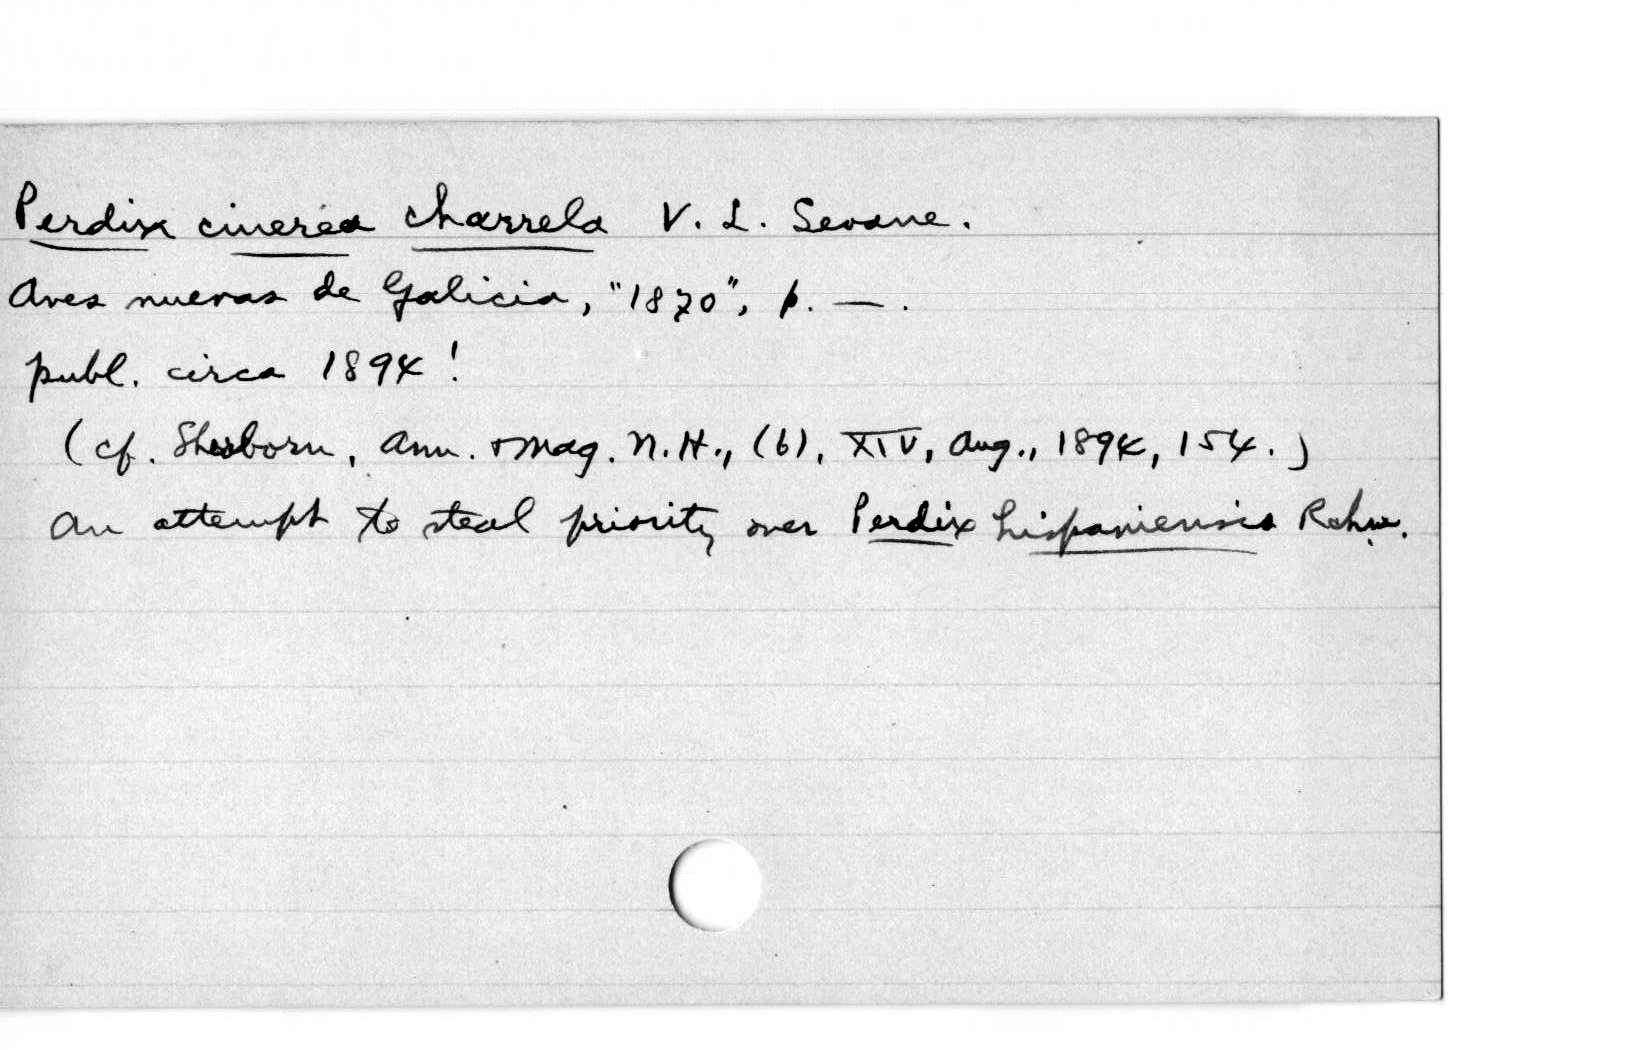 Perdix cinerea charrela V. L. Seoane.
Aves nuevas de Galicia, "1870", p. —.
publ. circa 1894!
(cf. Sherborn, Ann. & Mag. N. H., (6), XIV, Aug., 1894, 154.)
An attempt to steal priority over Perdix hispaniensis Rchw.